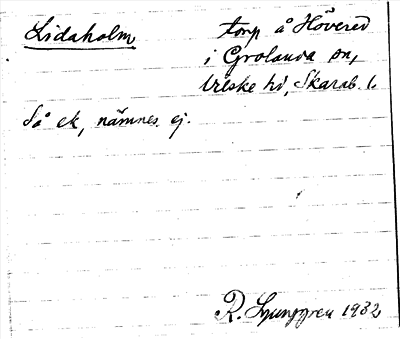 Lidaholm torp å Hövered
i Grolanda sn,
Vilske hd, Skarab. l.
Så ek, nämnes ej.
R. Ljunggren 1932